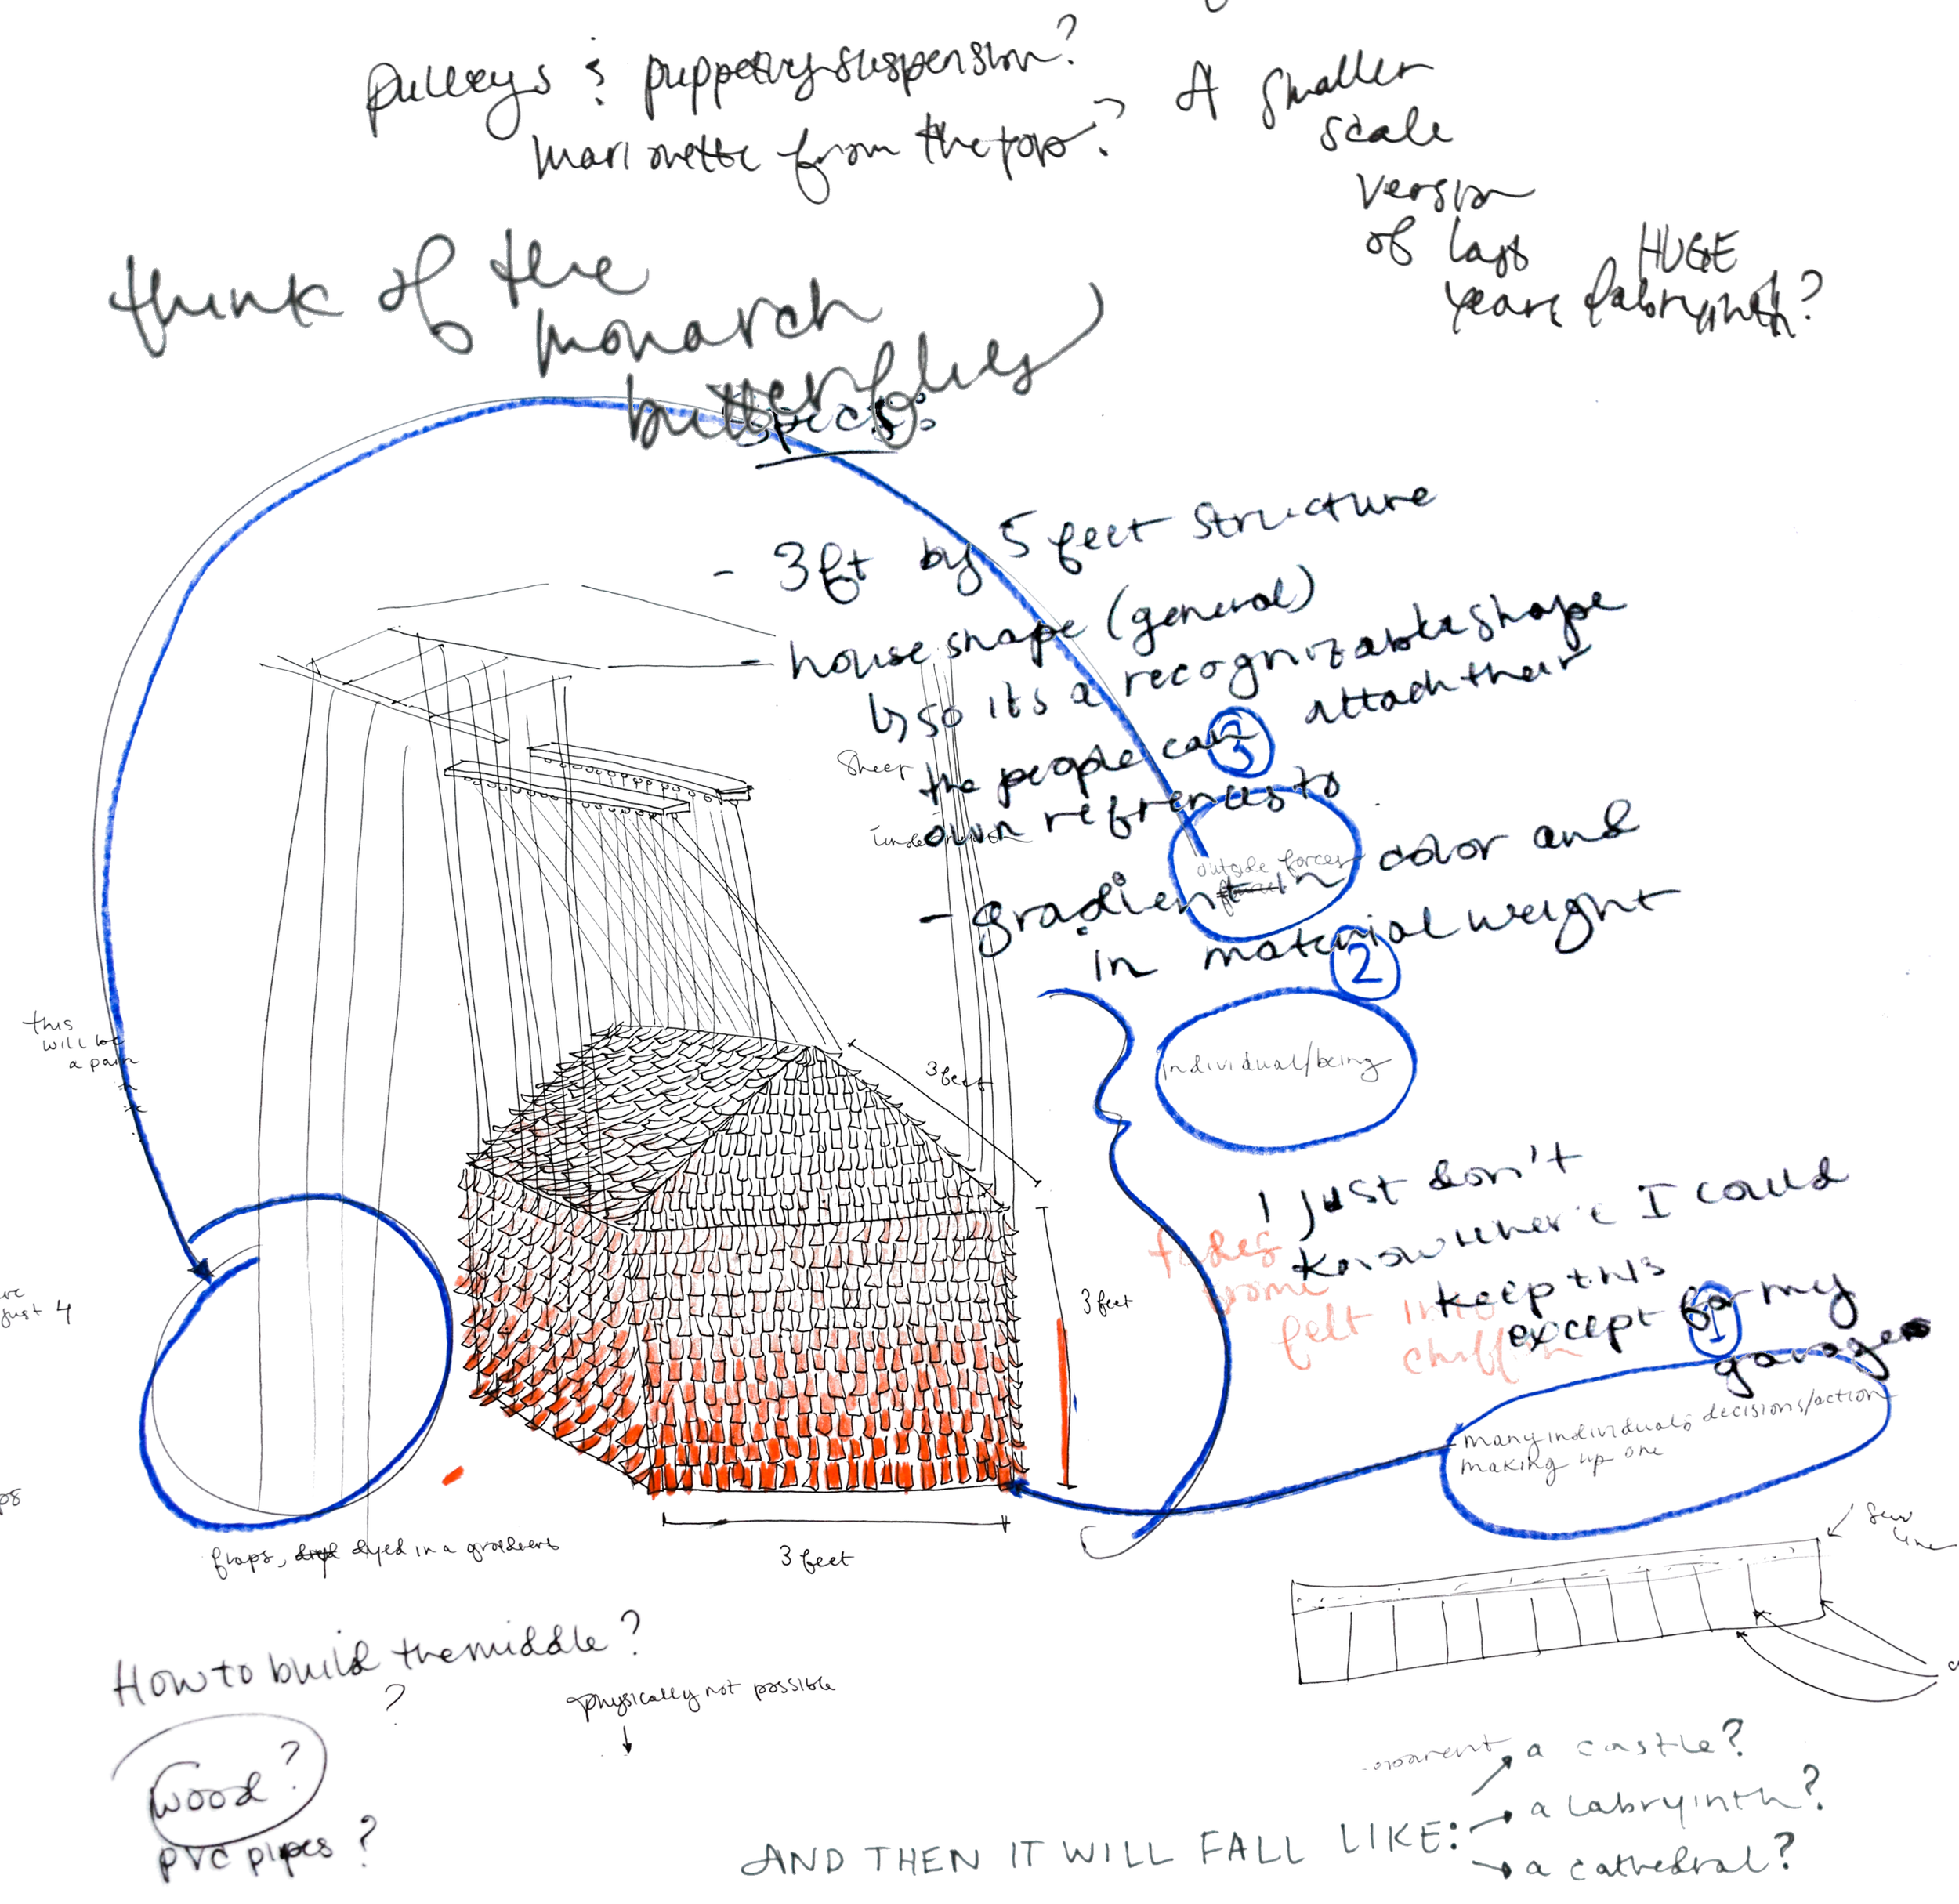 pulleys & puppetry suspension?
marionette from the top?
A smaller
scale
version
of last
HUGE
years labryinth?
think of the
monarch
butterflies
Specs:
- 3ft by 5 feet structure
- house shape (general)
↳ so its a recognizable shape
the people can attach their
own refrences to
- gradient in color and
in material weight
Sheer
3
outside forces
2
individual/being
this
will be
a pain
3 feet
3 feet
3 feet
I just don't
know where I could
keep this
except for my
garage
fades
from
felt into
chiffon
1
many individuals decisions/action
making up one
just 4
flaps, dyed in a gradient
sew
line
How to build the middle?
?
physically not possible
Wood?
PVC pipes?
AND THEN IT WILL FALL LIKE:
a castle?
a labryinth?
a cathedral?